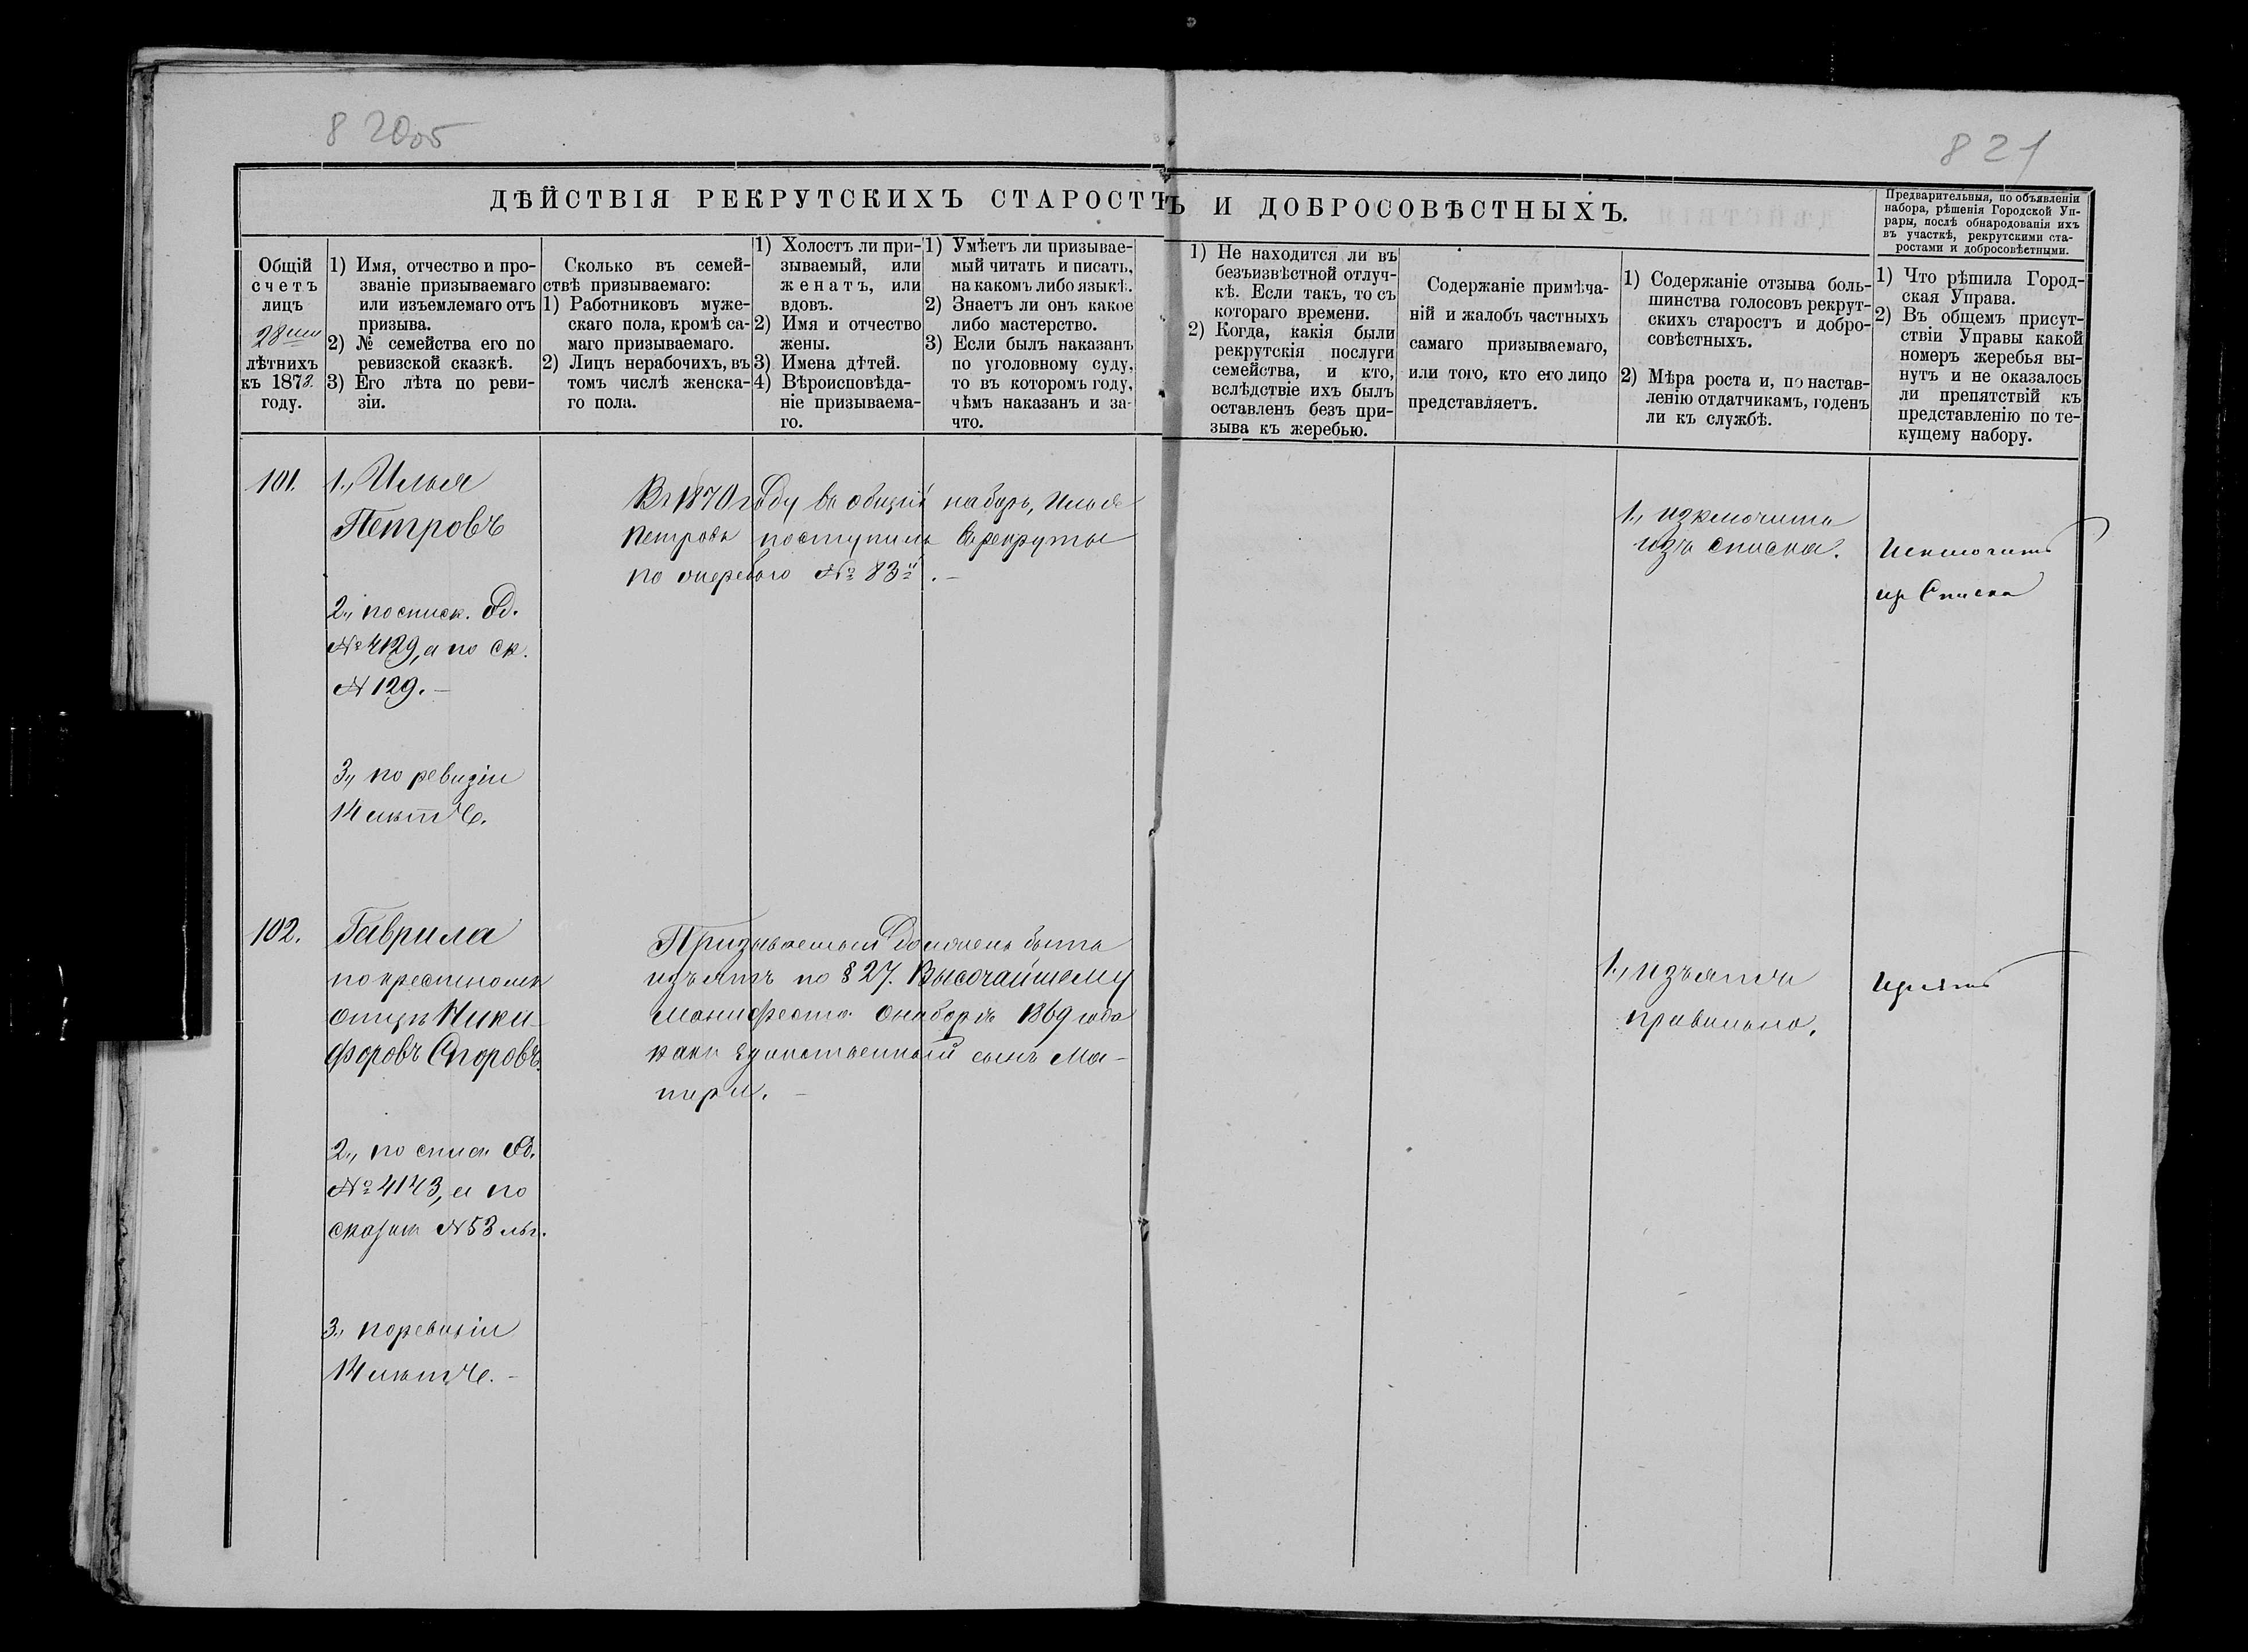 820об
821
ДѢЙСТВІЯ РЕКРУТСКИХЪ СТАРОСТЪ И ДОБРОСОВѢСТНЫХЪ.
Предварительныя, по объявленіи
набора, рѣшенія Городской Уп-
равы, послѣ обнародованія ихъ
въ участкѣ, рекрутскими ста-
ростами и добросовѣстными.
Общій
счетъ
лицъ
28ми
лѣтнихъ
къ 1873
году.
1) Имя, отчество и про-
званіе призываемаго
или изъемлемаго отъ
призыва.
2) № семейства его по
ревизской сказкѣ.
3) Его лѣта по реви-
зіи.
Сколько въ семей-
ствѣ призываемаго:
1) Работниковъ муже-
скаго пола, кромѣ са-
маго призываемаго.
2) Лицъ нерабочихъ, въ
томъ числѣ женска-
го пола.
1) Холостъ ли при-
зываемый, или
женатъ, или
вдовъ.
2) Имя и отчество
жены.
3) Имена дѣтей.
4) Вѣроисповѣда-
ніе призываема-
го.
1) Умѣетъ ли призывае-
мый читать и писать,
на какомъ либо языкѣ.
2) Знаетъ ли онъ какое
либо мастерство.
3) Если былъ наказанъ
по уголовному суду,
то въ которомъ году,
чѣмъ наказанъ и за-
что.
1) Не находится ли въ
безъизвѣстной отлуч-
кѣ. Если такъ, то съ
котораго времени.
2) Когда, какія были
рекрутскія послуги
семейства, и кто,
вслѣдствіе ихъ былъ
оставленъ безъ при-
зыва къ жеребью.
Содержаніе примѣча-
ній и жалобъ частныхъ
самаго призываемаго,
или того, кто его лицо
представляетъ.
1) Содержаніе отзыва боль-
шинства голосовъ рекрут-
скихъ старостъ и добро-
совѣстныхъ.
2) Мѣра роста и, по настав-
ленію отдатчикамъ, годенъ
ли къ службѣ.
1) Что рѣшила Город-
ская Управа.
2) Въ общемъ присут-
ствіи Управы какой
номеръ жеребья вы-
нутъ и не оказалось
ли препятствій къ
представленію по те-
кущему набору.
101.
1., Илья
Петровъ
2., по списк. Од.
№ 4129, а по ск.
№ 129. —
3., по ревизіи
14 лѣтъ
Въ 1870 году въ общій наборъ, Илья
Петровъ поступилъ въ рекруты
по № 83й. —
1., изключить
изъ списка.
Исключить
из Списка
102.
Гаврила
по крестному
отцу Ники-
форовъ Споровъ.
2., по списк Од.
№ 4143, а по
сказкѣ № 53
3., по ревизіи
14 лѣтъ
Призываемый долженъ быть
изъятъ по § 27. Высочайшему
Манифеста о наборѣ 1869 года
какъ единственный сынъ Ма-
тери. —
1., изъять
правильно.
Изъять